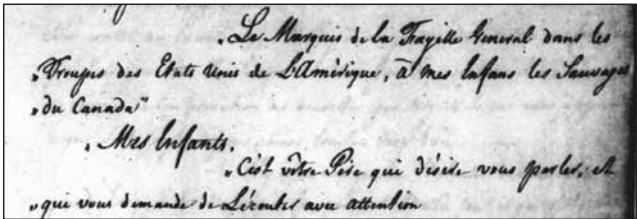 „Le Marquis de la Fayette General dans les
„Troupes des Etats Unis de L'Amérique, à mes Enfans les Sauvages
„du Canada"
„Mes Enfants.
„C'est vôtre Père qui désire vous parler, et
„qui vous demande de L'écouter avec attention